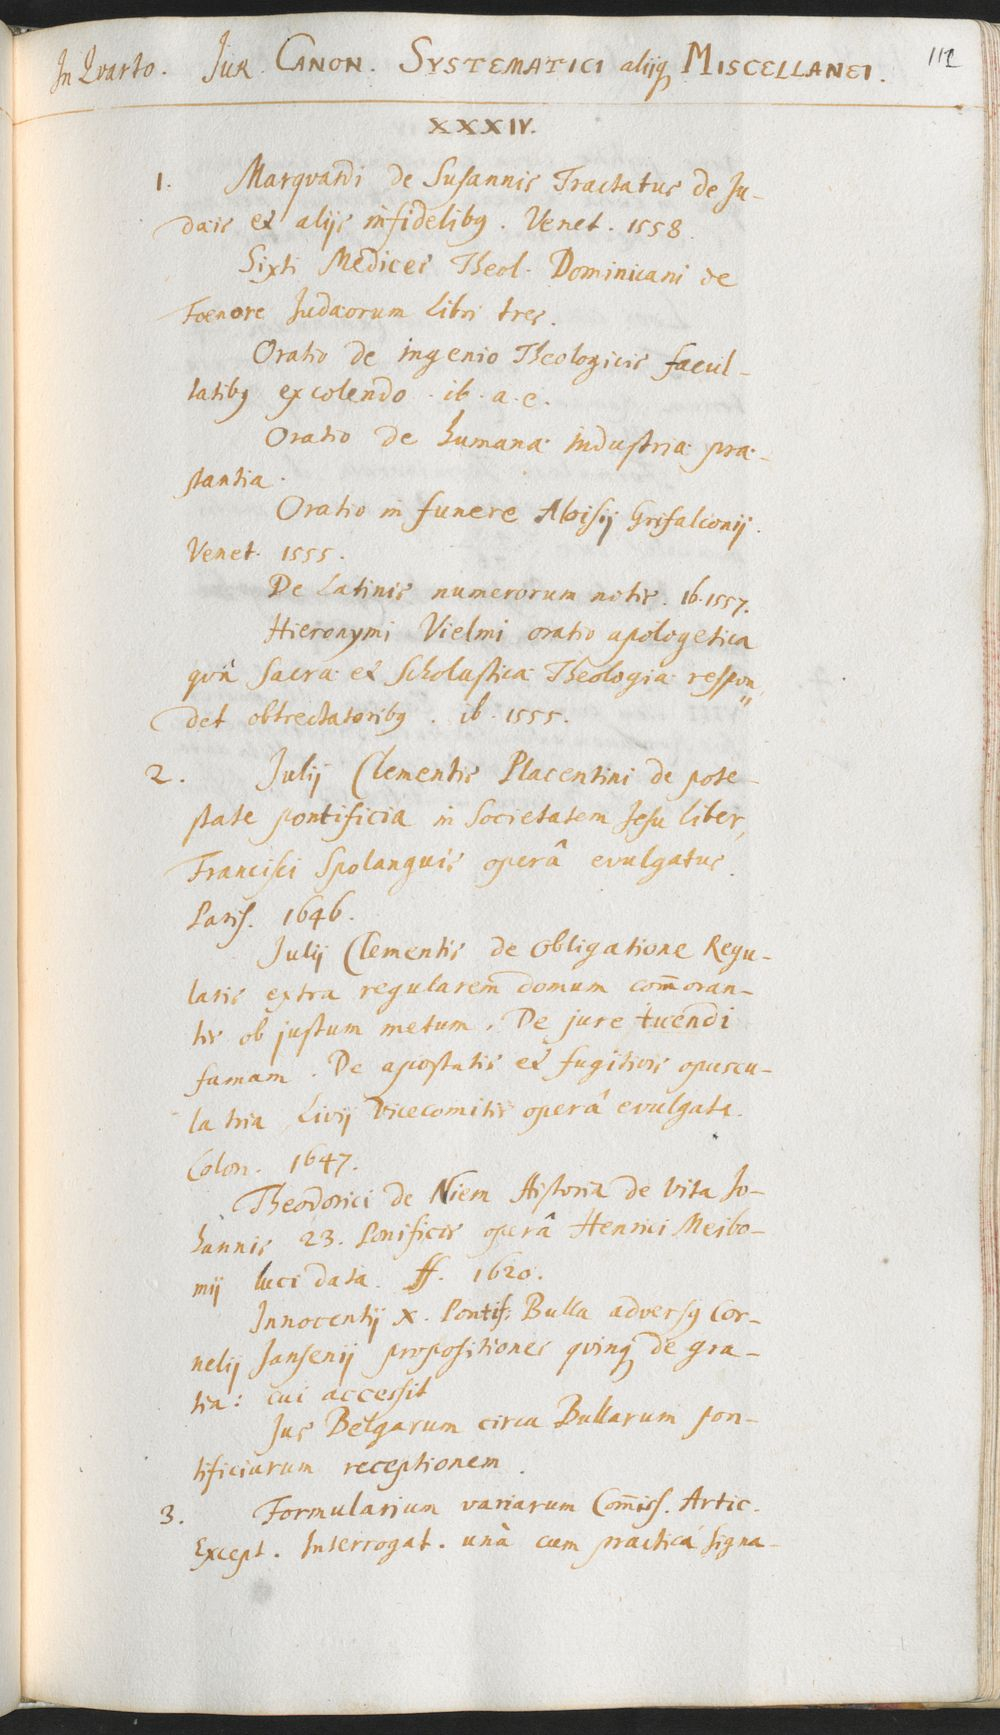 In Qvarto. JUR. CANON. SYSTEMATICI aliiq; MISCELLANEI. 111
XXXIV.
1. Marqvardi de Susannis Tractatus de Ju-
dæis et alijs infidelibq. Venet. 1558.
Sixti Medices Theol. Dominicani de
Fœnore Judæorum Libri tres.
Oratio de ingenio Theologicis facul-
tatibq excolendo. ib. a. e.
Oratio de humanæ industriæ præ-
stantia.
Oratio in funere Aloisij Grifalconij.
Venet. 1555.
De Latinis numerorum notis. ib. 1557.
Hieronymi Vielmi oratio apologetica
qvâ Sacra et Scholastica Theologia respon„
det obtrectatoribq. ib. 1555.
2. Julij Clementis Placentini de pote-
state pontificia in Societatem Jesu Liber,
Francisci Spolanguis operâ evulgatus.
Paris. 1646.
Julij Clementis de obligatione Regu-
laris extra regularem domum com̄oran-
tis ob justum metum. De jure tuendi
famam. De apostatis et fugitivis opuscu-
la tria Livij Vicecomitis operâ evulgata.
Colon. 1647.
Theodorici de Niem Historia de vita Jo-
hannis 23. Ponificis operâ Henrici Meibo-
mij luci data. ff. 1620.
Innocentij X. Pontif: Bulla adversq Cor-
nelij Jansenij propositiones qvinq; de gra-
tia: cui accessit
Jus Belgarum circa Bullarum pon-
tificiarum receptionem.
3. Formularium variarum Com̄iss. Artic.
Except. Interrogat. unà cum practicâ signa-